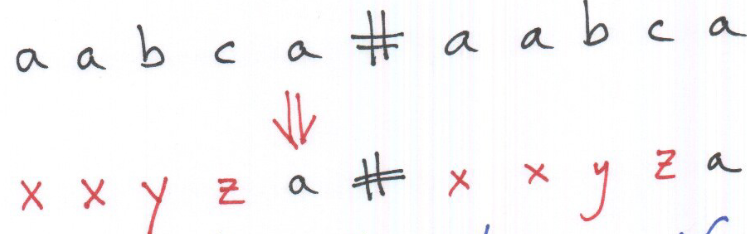 a a b c a # a a b c a
⇓
x x y z a # x x y z a